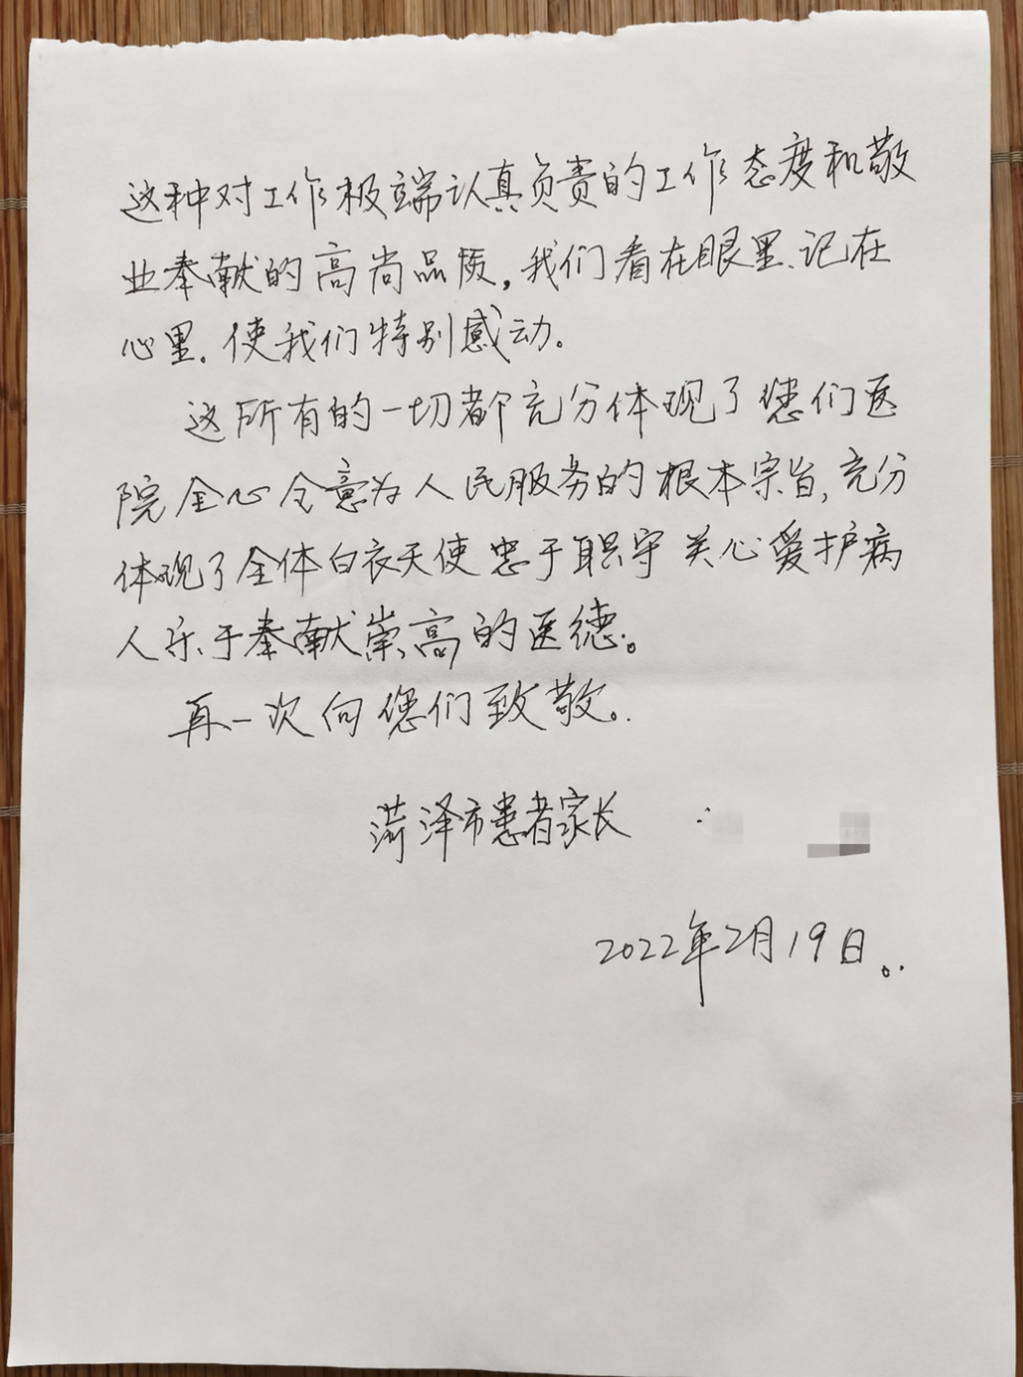 这种对工作极端认真负责的工作态度和敬
业奉献的高尚品质，我们看在眼里、记在
心里.使我们特别感动。
这所有的一切都充分体现了您们医
院全心全意为人民服务的根本宗旨,充分
体现了全体白衣天使忠于职守关心爱护病
人乐于奉献崇高的医德。
再一次向您们致敬。
菏泽市患者家长
2022年2月19日。